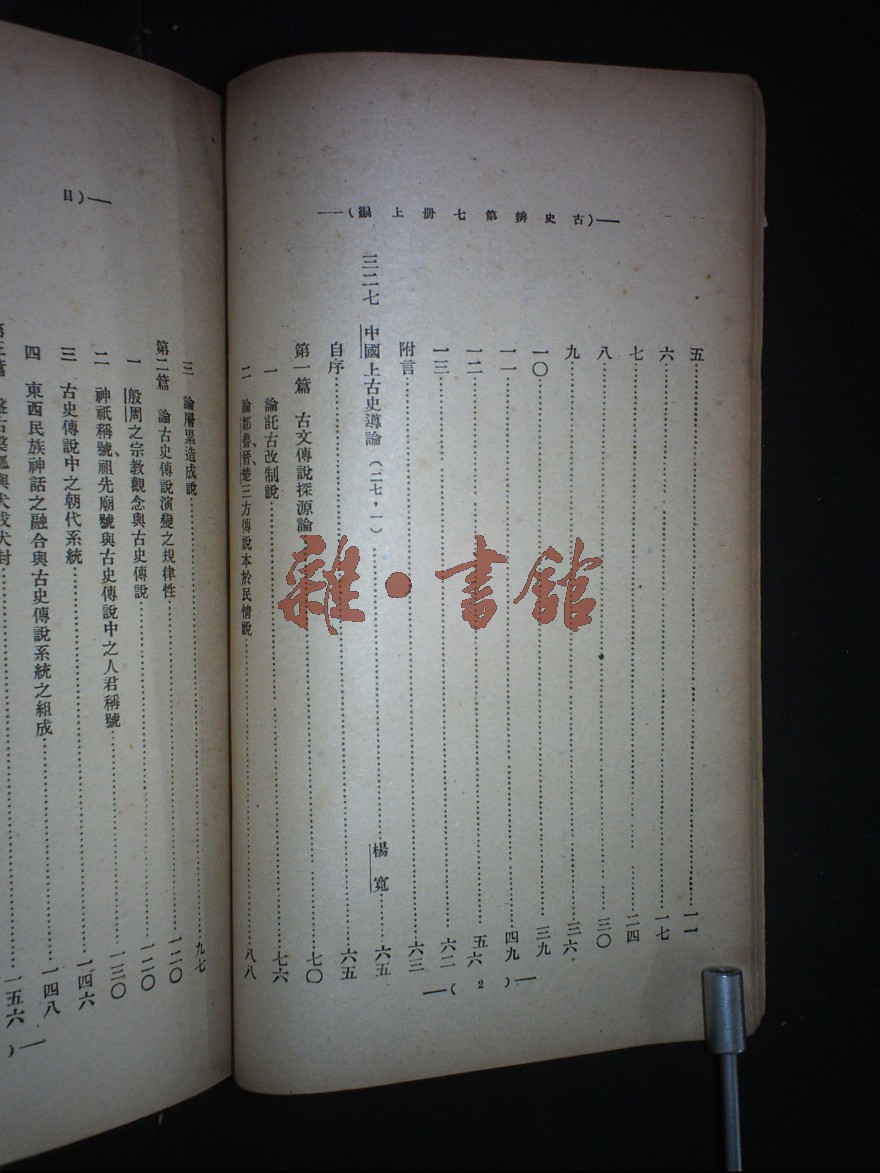 古史辨第七册上編
五 一一
六 一七
七 二四
八 三〇
九 三六
一〇 三九
一一 四九
一二 五六
一三 六二
附言 六三
三二七 中國上古史導論(二七,一) 楊寬 六五
自序 六五
第一篇 古文傳說探源論 七〇
一 論託古改制說 七六
二 論鄒魯、晉、楚三方傳說本於民情說 八八
(2)
目
三 論層累造成說 九七
第二篇 論古史傳說演變之規律性 一二〇
一 殷周之宗教觀念與古史傳說 一二〇
二 神祇稱號、祖先廟號與古史傳說中之人君稱號 一三〇
三 古史傳說中之朝代系統 一四六
四 東西民族神話之融合與古史傳說系統之組成 一四八
第三篇 盤古槃瓠與犬戎犬封 一五六
雜·書館